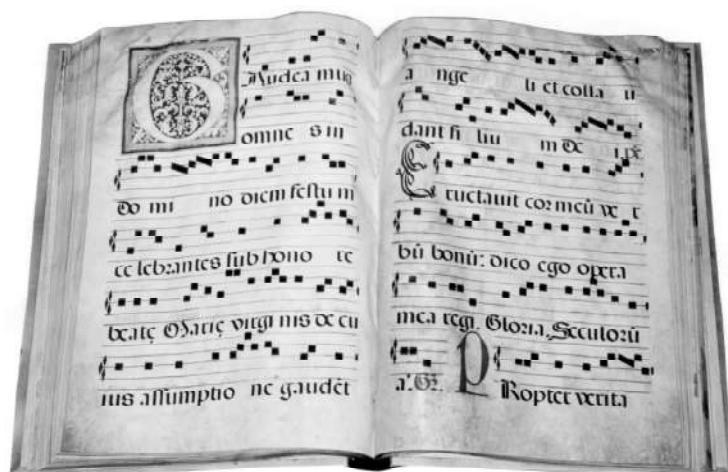 GAudea mus
omne s in
do mi no diem festu m
ce lebrantes sub hono re
beatę Marię virgi nis de cu
ius assumptio ne gaudēt
a nge li et colla u
dant fi liu m de
Eructauit cor meū ve r
bū bonū: dico ego opera
mea regi. Gloria. Seculorū
a.
PRopter verita